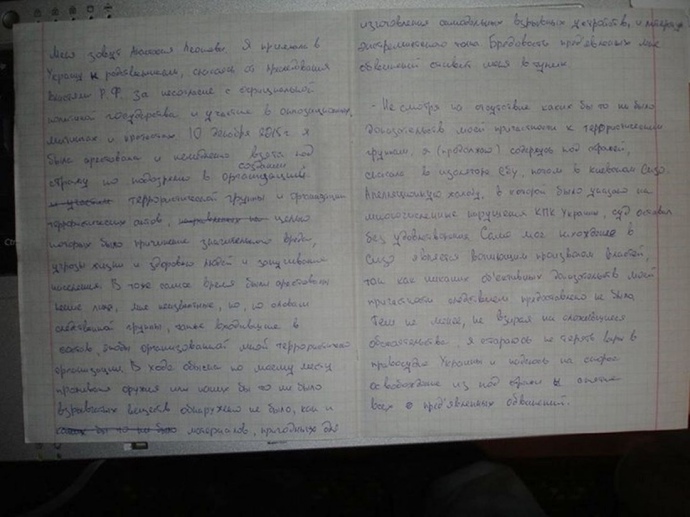 Меня зовут Анастасия Леонова. Я приехала в
Украину к родственникам, спасаясь от преследования
властями Р.Ф. за несогласие с официальной
политикой государства и участие в оппозиционных
митингах и протестах. 10 декабря 2015г. я
была арестована и незаконно взята под
стражу по подозрению в создании организации
и участию террористической группы и организации
террористических актов, целью
которых было причинение значительного вреда,
угрозы жизни и здоровью людей и запугивание
населения. В тоже самое время были арестованы
иные лица, мне неизвестные, но, по словам
следственной группы, также входившие в
состав, якобы организованной мной террористической
организации. В ходе обыска по моему месту
проживания оружия или каких бы то ни было
взрывчатых веществ обнаружено не было, как и
каких бы то ни было материалов, пригодных для
изготовления самодельных взрывных устройств, и литературы
экстремистского толка. Бредовость предъявленных мне
обвинений ставит меня в тупик.
- Не смотря на отсутствие каких бы то ни было
доказательств моей причастности к террористическим
группам, я (продолжаю) содержусь под стражей,
сначала в изоляторе СБУ, потом в киевском Сизо.
Апелляционную жалобу, в которой было указано на
многочисленные нарушения КПК Украины, суд оставил
без удовлетворения. Само мое нахождение в
Сизо является вопиющим произволом властей,
так как никаких объективных доказательств моей
причастности следствием предоставлено не было.
Тем не менее, не взирая на сложившиеся
обстоятельства, я стараюсь не терять веры в
правосудие Украины и надеюсь на скорое
освобождение из под стражи и снятие
всех предъявленных обвинений.